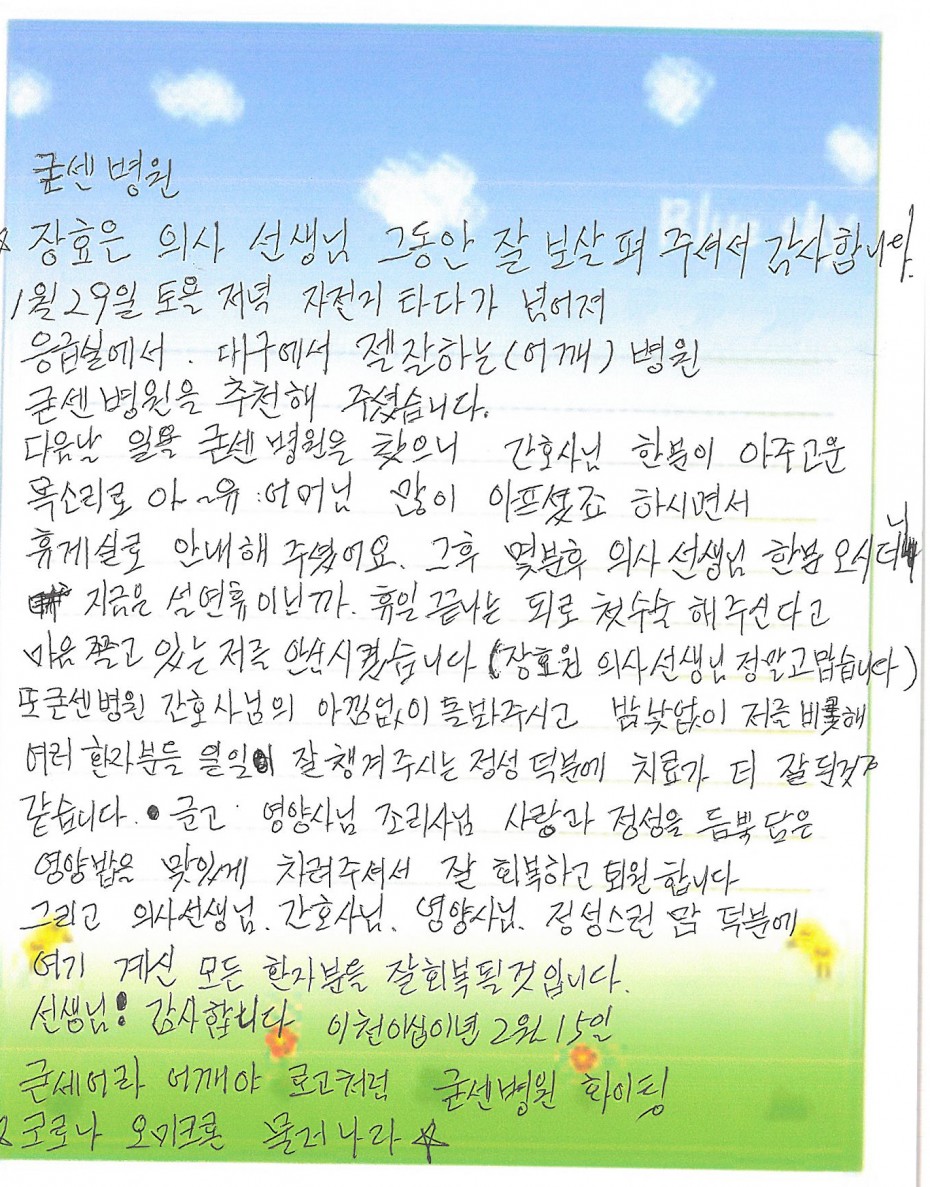 굳센병원
☆ 장효은 의사 선생님 그동안 잘 보살펴 주셔서 감사합니다.
1월29일 토욜 저녁 자전거 타다가 넘어져
응급실에서. 대구에서 젤잘하는(어깨) 병원
굳센병원을 추천해 주셨습니다.
다음날 일욜 굳센병원을 찾으니 간호사님 한분이 아주고운
목소리로 아~유 어머님 많이 아프셨죠 하시면서
휴게실로 안내해 주셨어요. 그후 몇분후 의사선생님 한분 오시더니
지금은 설연휴이닌까. 휴일 끝나는 되로 첫수술 해주신다고
마음 쫄고 있는 저를 안심시켰습니다 (장효은 의사선생님 정말고맙습니다)
또굳센병원 간호사님의 아낌없이 돌봐주시고 밤낮없이 저를 비롯해
여러 환자분들 일일이 잘챙겨주시는 정성 덕분에 치료가 더 잘된것
같습니다. 글고 영양사님 조리사님 사랑과 정성을 듬뿍 담은
영양밥을 맛있게 차려주셔서 잘 회복하고 퇴원합니다
그리고 의사선생님. 간호사님. 영양사님. 정성스런 맘 덕분에
여기 계신 모든 환자분을 잘회복될것입니다.
선생님! 감사합니다 이천이십이년 2월 15일
굳세어라 어깨야 로고처럼 굳센병원 화이팅
☆ 코로나 오미크론 물러나라 ☆